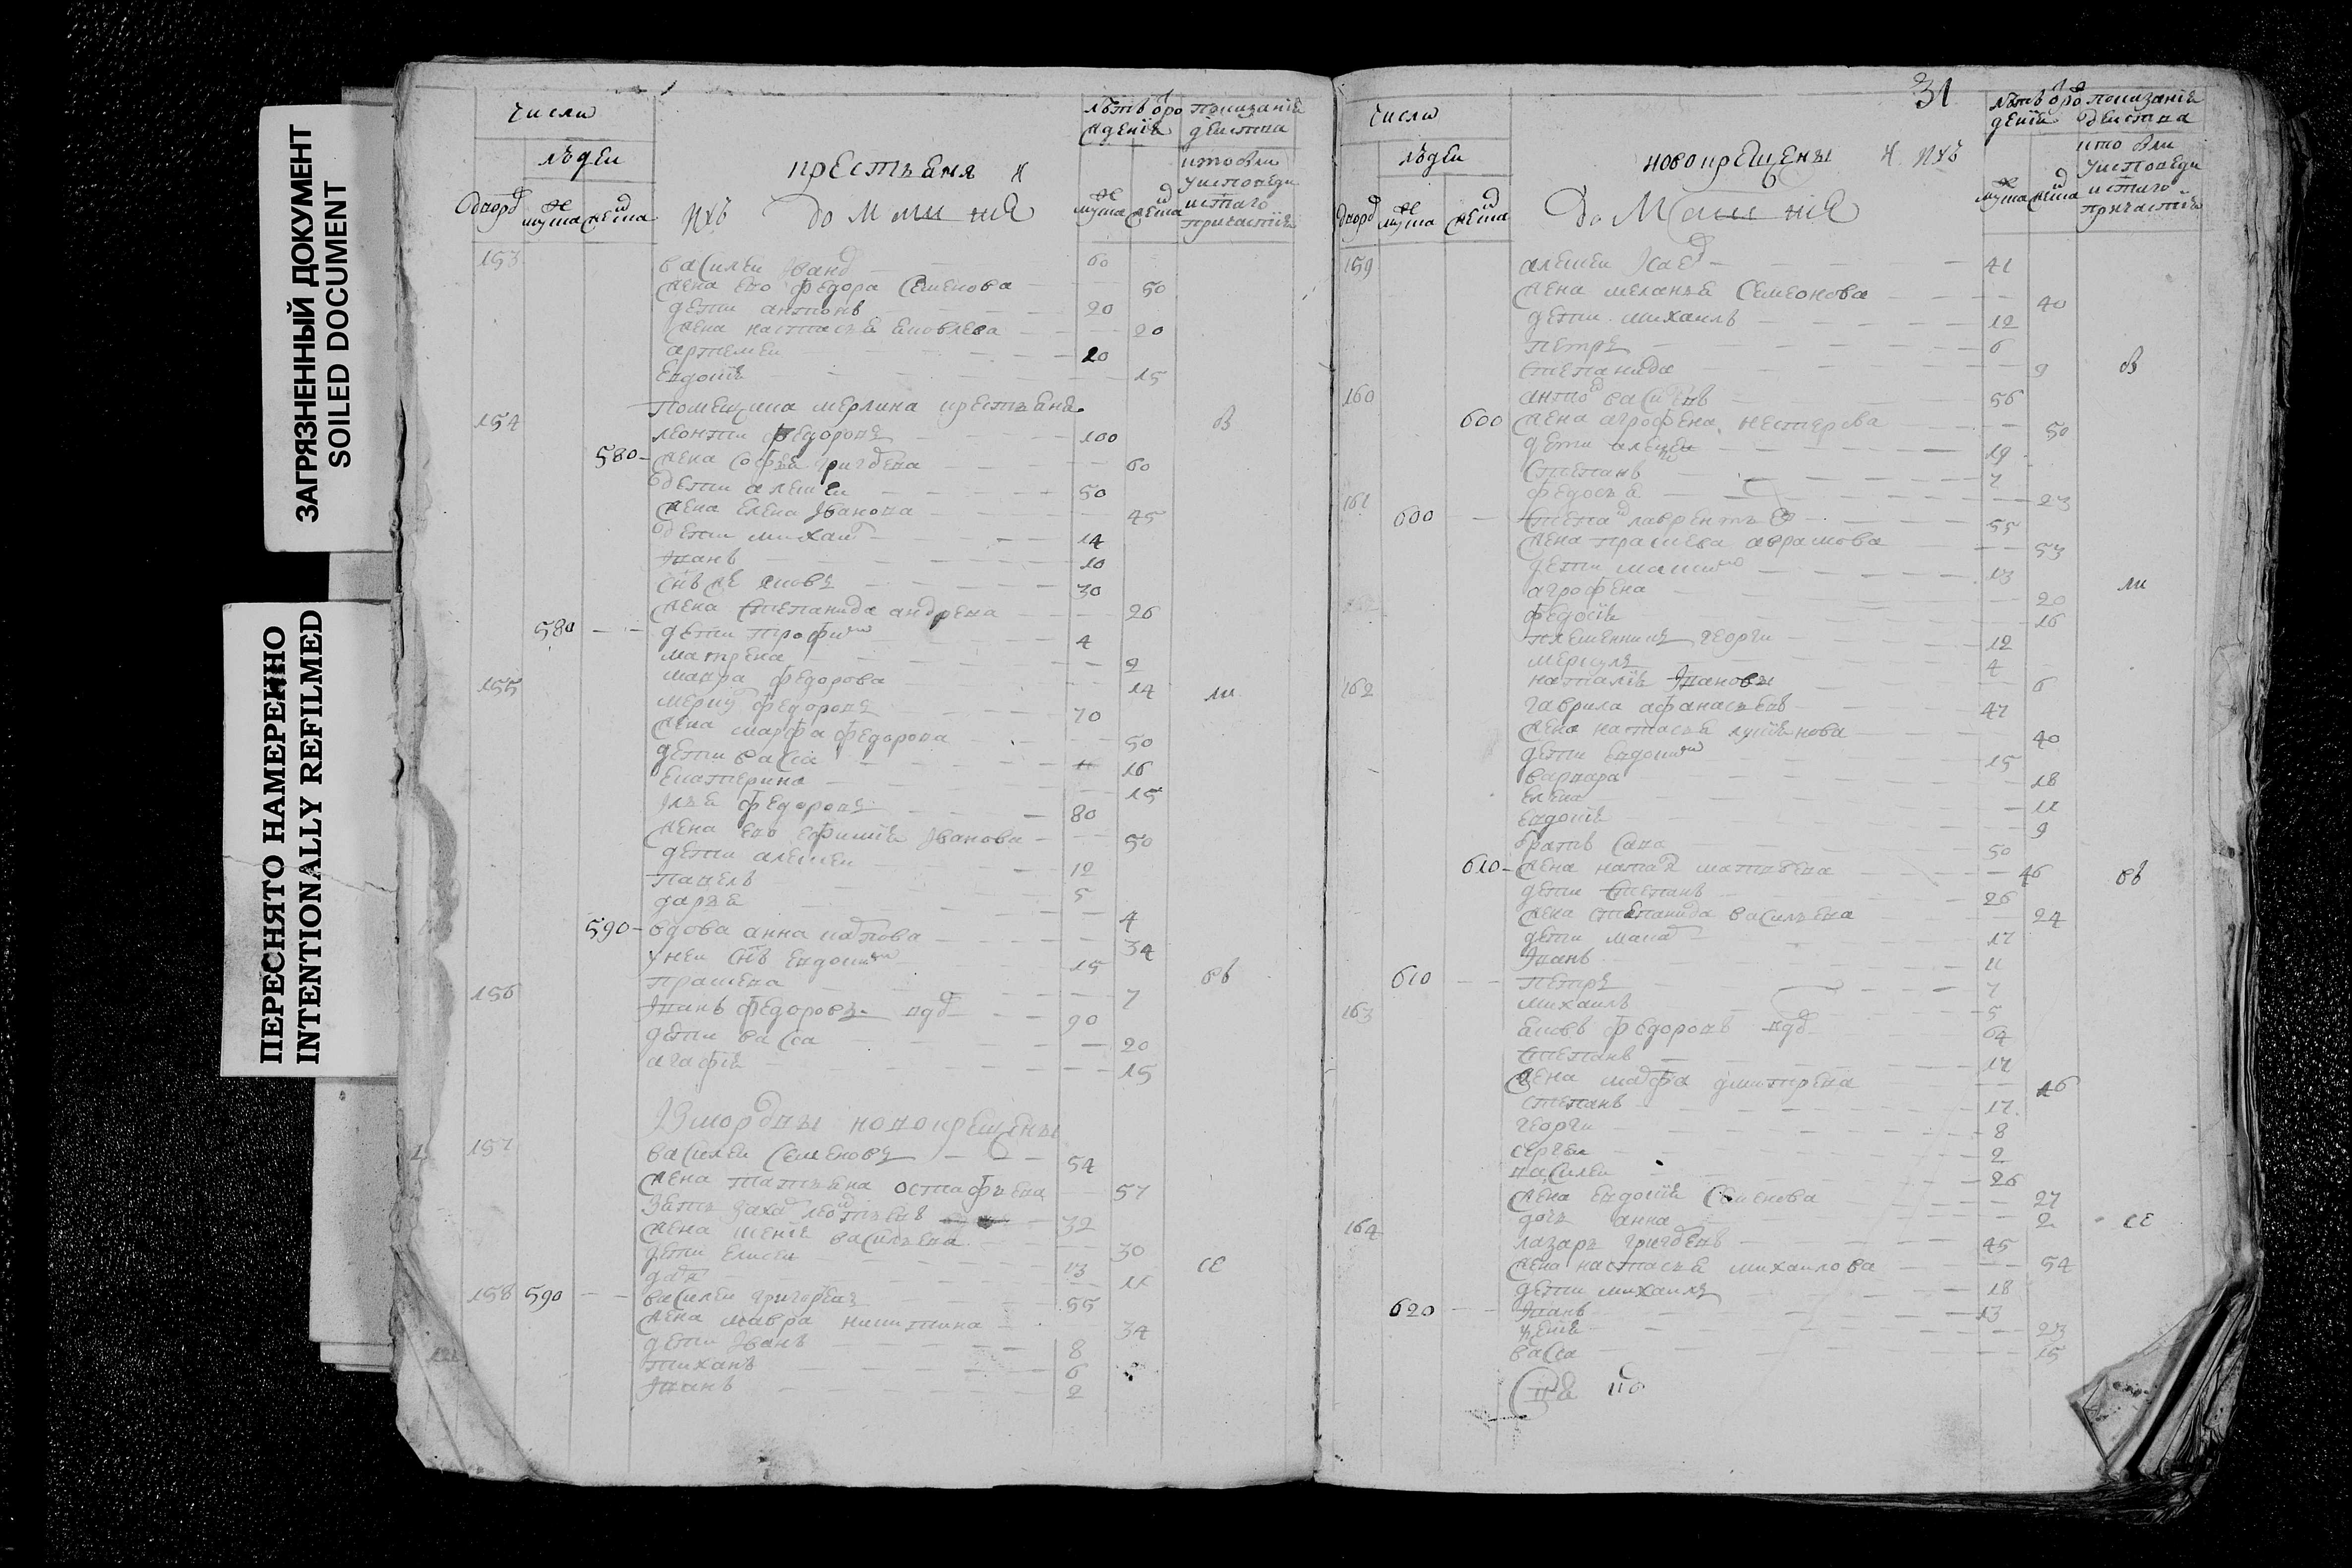 ЗАГРЯЗНЕННЫЙ ДОКУМЕНТ
SOILED DOCUMENT
ПЕРЕСНЯТО НАМЕРЕННО
INTENTIONALLY REFILMED
Числа
людеи
дворо мужеска женска
крестьяня и
ихъ домашние
лѣтъ о рождениѣ
мужеска женска
показаниѣ действа кто был у исповеди и с-таго причастиѣ
153 василеи Иванов 60
жена ево федора семенова 50
дети антонъ 20
жена настасья яковлева 20
артемеи 20
евдокиѣ 15
помещика мерлина крестьяня
154 леонти федоровъ 100 В
580 жена софья григорева 60
дети алексеи 50
жена елена Иванова 45
дети михаил 14
Иванъ 10
яковъ 30
жена степанида андреева 26
580 дети трофим 4
матрена 2
мавра федорова 14
155 меркул федоровъ 70
жена марфа федорова 50
дети васса 16
екатерина 15
Илья федоровъ 80
жена ево ефимиѣ Иванова 50
дети алексеи 12
павелъ 5
дарья 4
590 вдова анна 34
у неи снъ евдоким 15
прасковя 7
156 Иванъ федоровъ вдов 90
дети васса 20
агафиѣ 15
новокрещены
157 василеи семеновъ 54
жена татьяна остафьева 57
зять 32
жена васильева 30
дети елисеи 13
11
СЕ
158 590 василеи григоревъ 55
жена мавра никитина 34
дети Иванъ 8
тиханъ 6
Иванъ 2
31
Числа
людеи
дворо мужеска женска
новокрещены и ихъ
домашние
лѣтъ о рождениѣ
мужеска женска
показаниѣ действа кто был у исповеди и с-таго причастиѣ
159 алексеи 41
жена меланья семеонова 40
дети михаилъ 12
петръ 6
степанида 9 В
160 антон васильевъ 56
600 жена агрофена нестерова 50
дети алексеи 19
степанъ 7
федосья 23
161 600 степан лаврентьев 55
жена прасковя аврамова 53
дети максим 13
агрофена 20
федосиѣ 16
племенникъ георги 12
меркулъ 4
наталиѣ Иванова 6
162 гаврила афанасьевъ 47
жена настасья лукиянова 40
дети евдоким 15
варвара 18
елена 11
евдокиѣ 9
братъ сава 50
610 жена матвеева 46
дети степанъ 26
жена степанида васильева 24
дети 17
Иванъ 11
610 петръ 7
михаилъ 5
163 яковъ федоровъ вдов 64
степанъ 17
жена марфа дмитрева 46
степанъ 17
георги 8
сергеи 2
василеи 26
жена евдокиѣ семенова 27
дочь анна 2 СЕ
164 лазарь григоревъ 45
жена настасья михаилова 54
дети михаилъ 18
620 Иванъ 13
23
васса 15